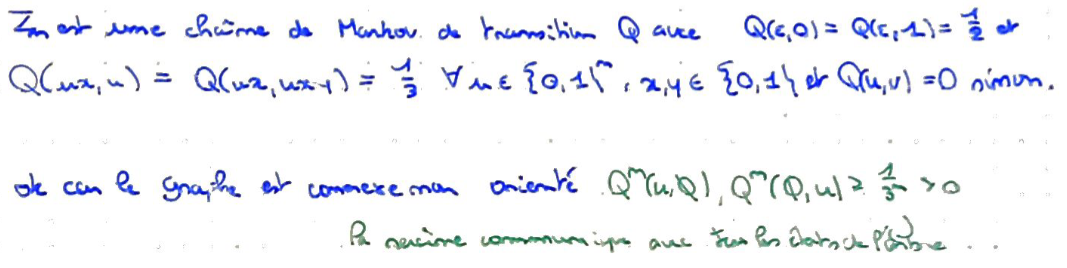 Zn est une chaîne de Markov de transition Q avec Q(ε,0) = Q(ε,1) = 1/2 et
Q(ux,u) = Q(ux,uxy) = 1/3 ∀ u ∈ {0,1}^n, x,y ∈ {0,1} et Q(u,v) = 0 sinon.
ok car le graphe est connexe non orienté Q^n(u,∅), Q^n(∅,u) ≥ 1/3^n > 0
la racine communique avec tous les états de l'arbre